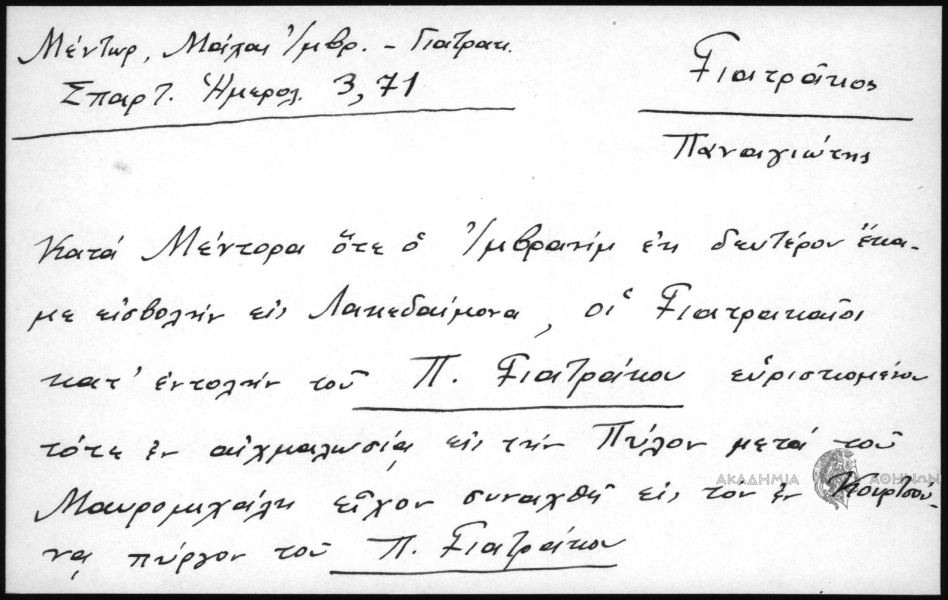 Μέντωρ, Μάχαι Ἰμβρ. – Γιατρακ.
Σπαρτ. Ἡμερολ. 3, 71
Γιατρᾶκος
Παναγιώτης
Κατά Μέντορα ὅτε ὁ Ἰμβραήμ ἐκ δευτέρου ἔκα-
με εἰσβολήν εἰς Λακεδαίμονα, οἱ Γιατρακαῖοι
κατ' ἐντολήν τοῦ Π. Γιατράκου εὑρισκομένου
τότε ἐν αἰχμαλωσίᾳ εἰς τήν Πύλον μετά τοῦ
ΑΚΑΔΗΜΙΑ ΑΘΗΝΩΝ
Μαυρομιχάλη εἶχον συναχθῆ εἰς τόν ἐν
νᾳ πύργον τοῦ Π. Γιατράκου